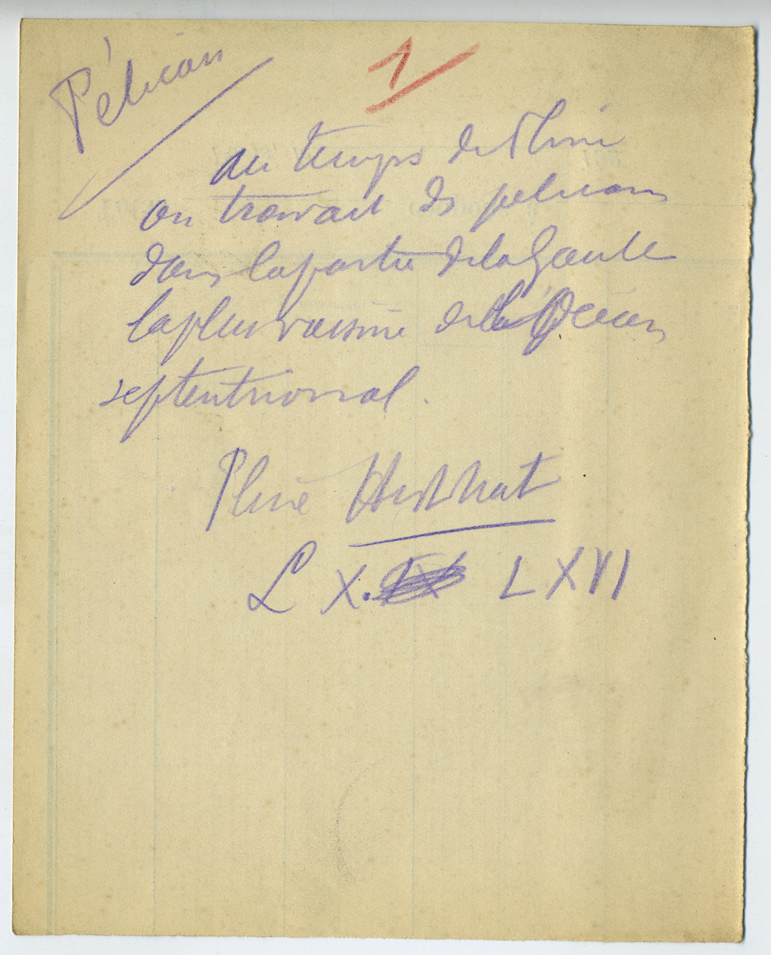 Pélican
1
au temps de Pline
on trouvait des pelicans
dans la partie de la Gaule
la plus voisine de l'Océan
septentrional.
Pline Hist Nat
L X. LXVI